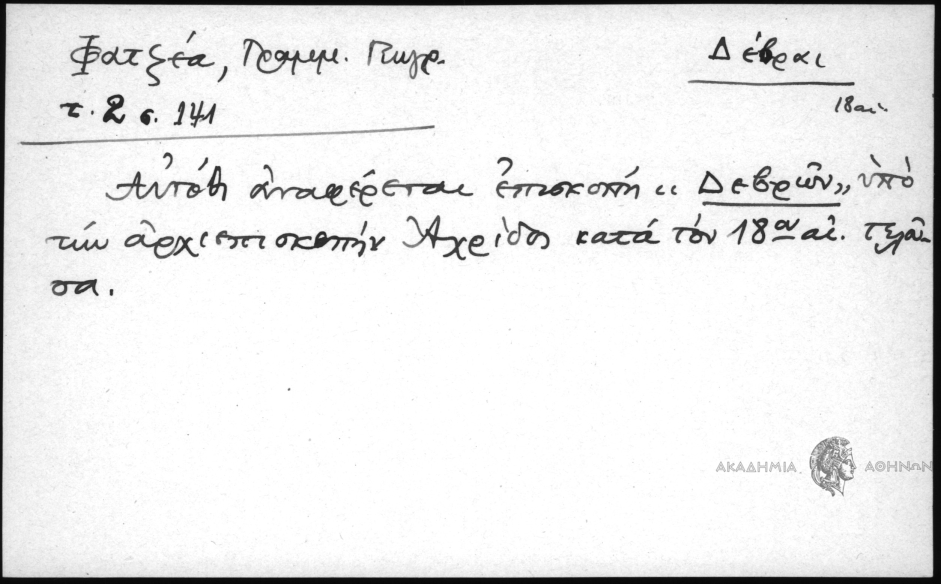 Φατζέα, Γραμμ. Γεωγρ.
Δέβραι
τ. 2 σ. 141
18 αι.
Αὐτόθι ἀναφέρεται ἐπισκοπή « Δεβρῶν » ὑπὸ
τὴν ἀρχιεπισκοπὴν Ἀχρίδος κατά τόν 18ον αἰ. τελοῦ-
σα.
ΑΚΑΔΗΜΙΑ ΑΘΗΝΩΝ